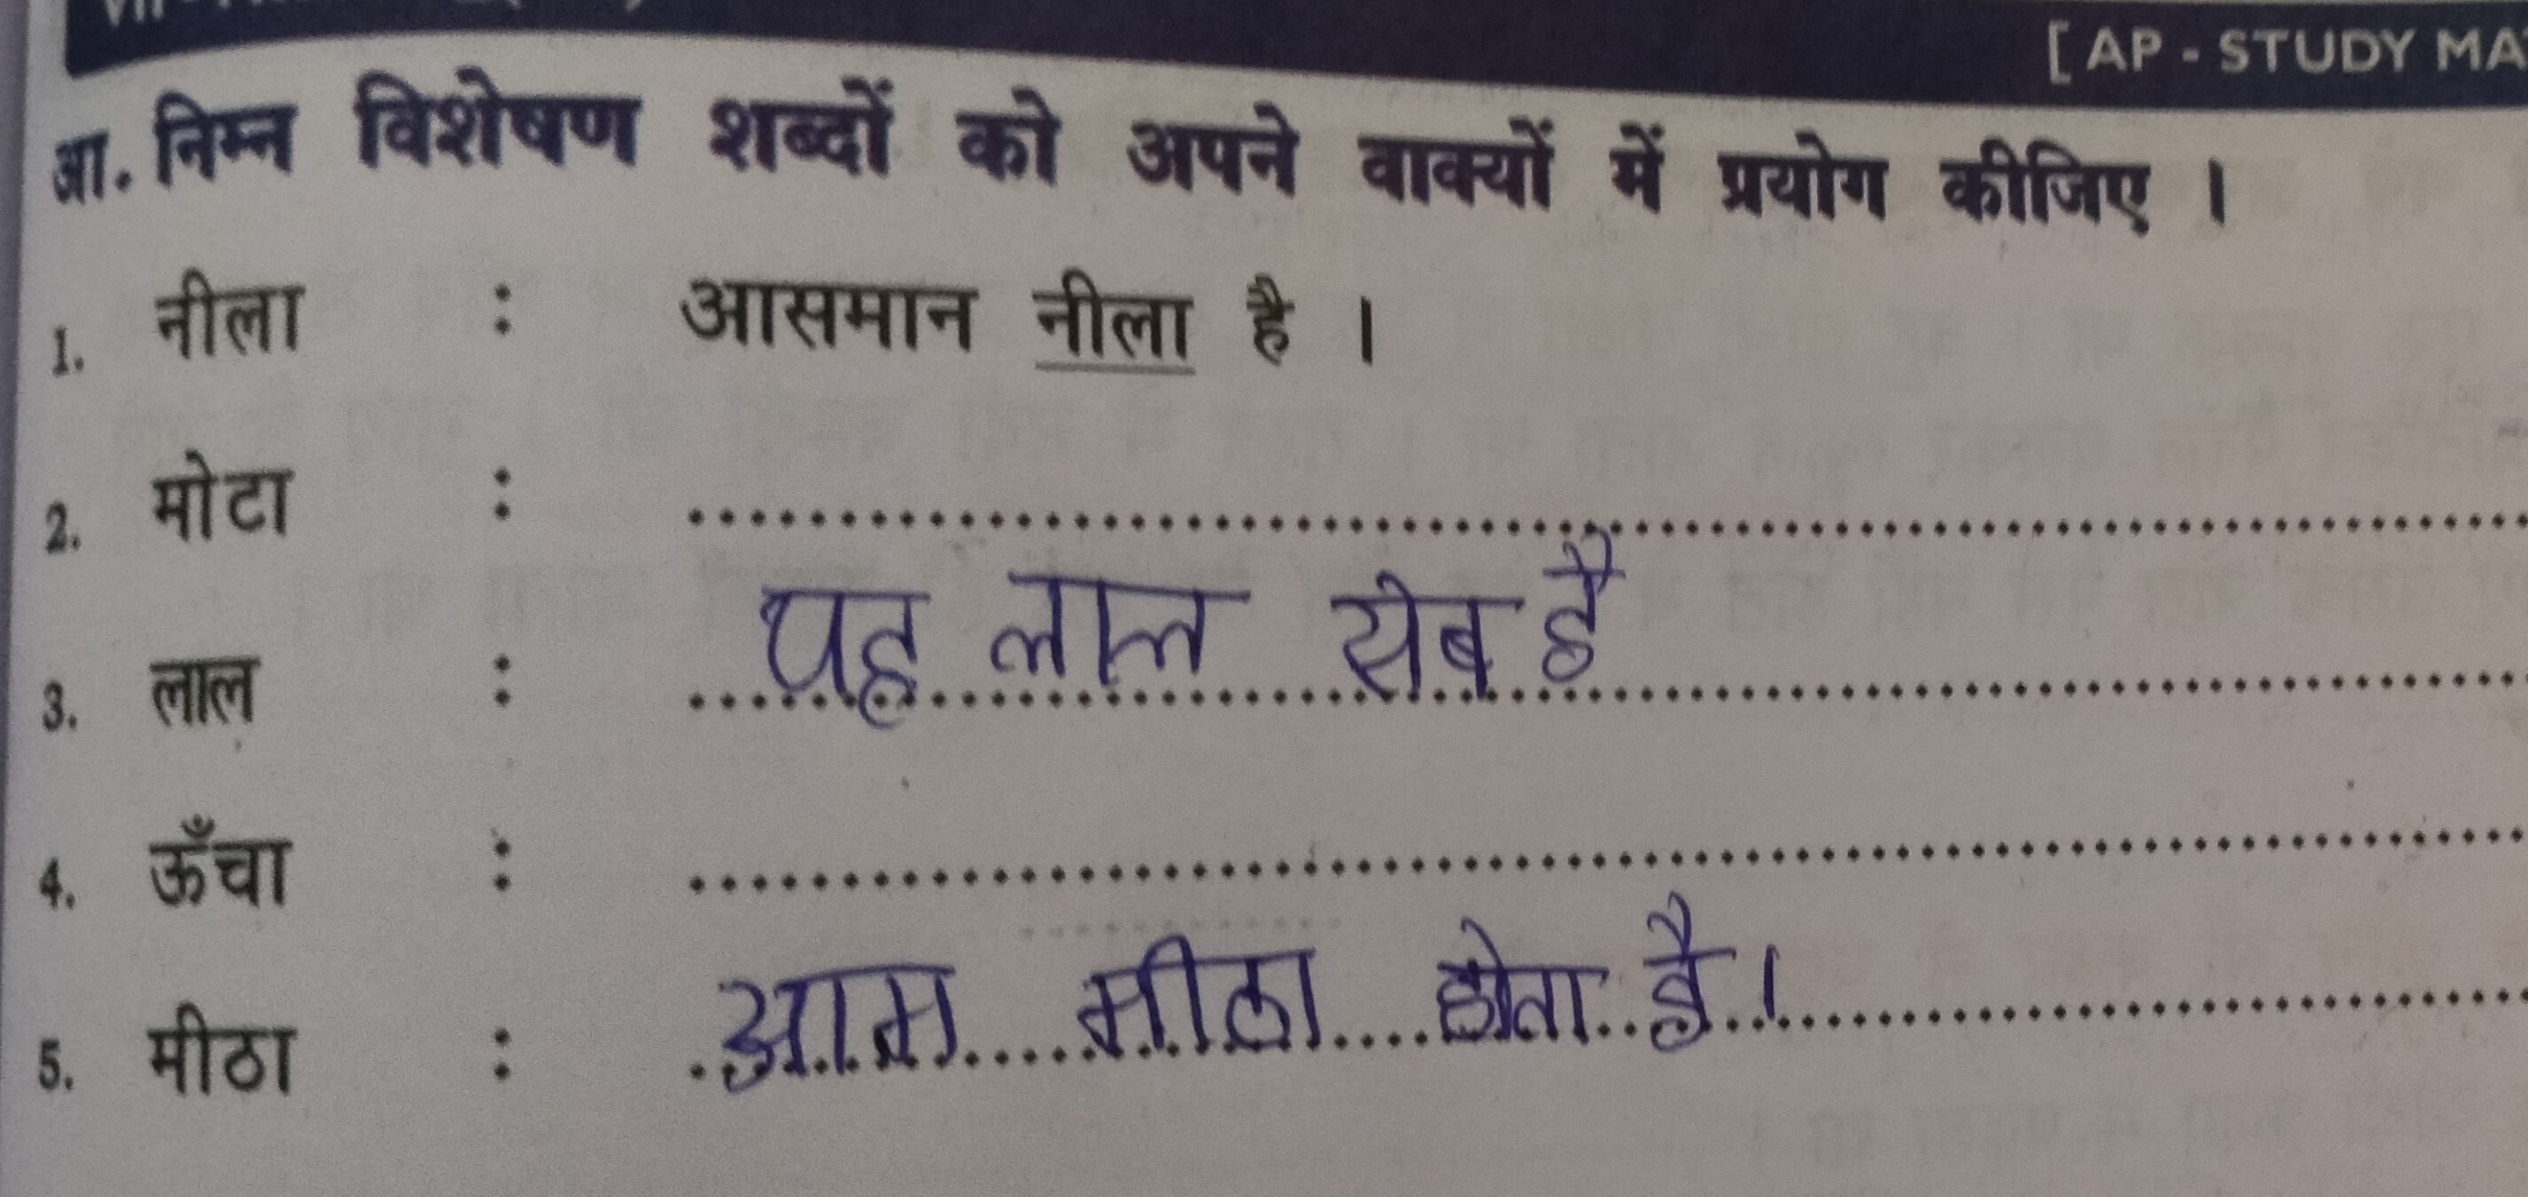 [ AP - STUDY MA
आ. निम्न विशेषण शब्दों को अपने वाक्यों में प्रयोग कीजिए ।
1. नीला : आसमान नीला है ।
2. मोटा :
3. लाल : यह लाल सेब है
4. ऊँचा :
5. मीठा : आम मीठा होता है ।